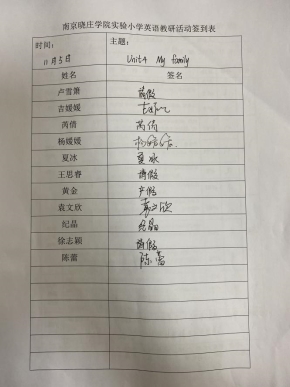 南京晓庄学院实验小学英语教研活动签到表
时间： 主题：
11月5日 Unit4 My family
姓名 签名
卢雪箫 病假
吉媛媛 吉媛媛
芮倩 芮倩
杨媛媛 杨媛媛
夏冰 夏冰
王思睿 请假
黄金 产假
袁文欣 袁文欣
纪晶 纪晶
徐志颖 请假
陈蕾 陈蕾